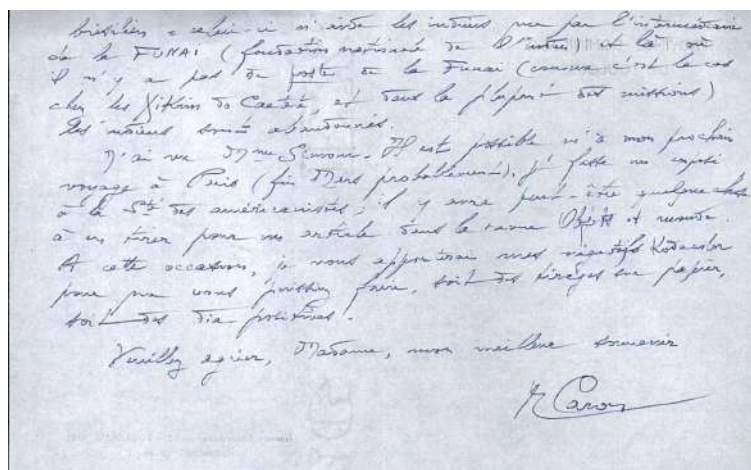 brésilien : celui-ci n'aide les indiens que par l'intermédiaire
de la FUNAI (fondation nationale de l'indien) et là où
il n'y a pas de poste de la Funai (comme c'est le cas
chez les Xikrin do Caeteté, et dans la plupart des missions)
les indiens sont abandonnés.
J'ai vu Mme Simoni. Il est possible qu'à mon prochain
voyage à Paris (fin Mars probablement), je fasse un exposé
à la Sté des américanistes ; il y aura peut-être quelque chose
à en tirer pour un article dans la revue Objets et monde.
A cette occasion, je vous apporterai mes négatifs Kodacolor
pour que vous puissiez faire, soit des tirages sur papier,
soit des diapositives.
Veuillez agréer, Madame, mon meilleur souvenir
R Caron